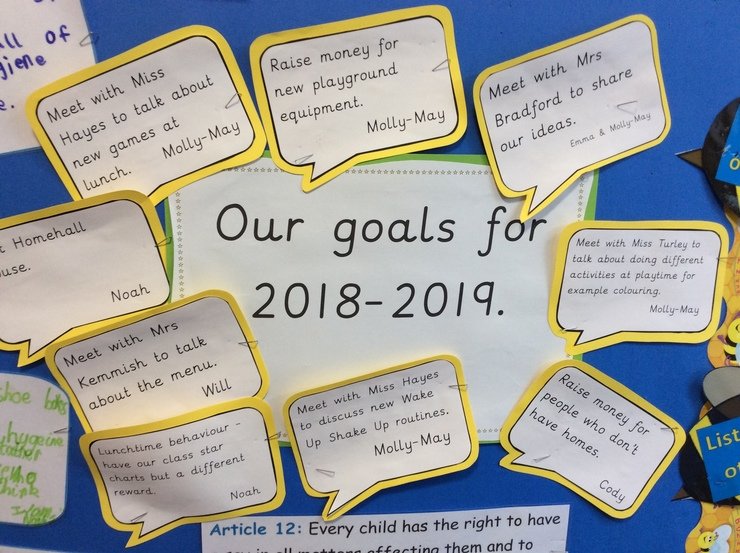 all of
Meet with Miss
Hayes to talk about
new games at
lunch.
Molly-May
Raise money for
new playground
equipment.
Molly-May
Meet with Mrs
Bradford to share
our ideas.
Emma & Molly-May
Our goals for
2018-2019.
Homehall
Noah
Meet with Miss Turley to
talk about doing different
activities at playtime for
example colouring.
Molly-May
Meet with Mrs
Kemmish to talk
about the menu.
Will
Meet with Miss Hayes
to discuss new Wake
Up Shake Up routines.
Molly-May
Raise money for
people who don't
have homes.
Cody
Lunchtime behaviour -
have our class star
charts but a different
reward.
Noah
Article 12: Every child has the right to have
say in all matters affecting them and to